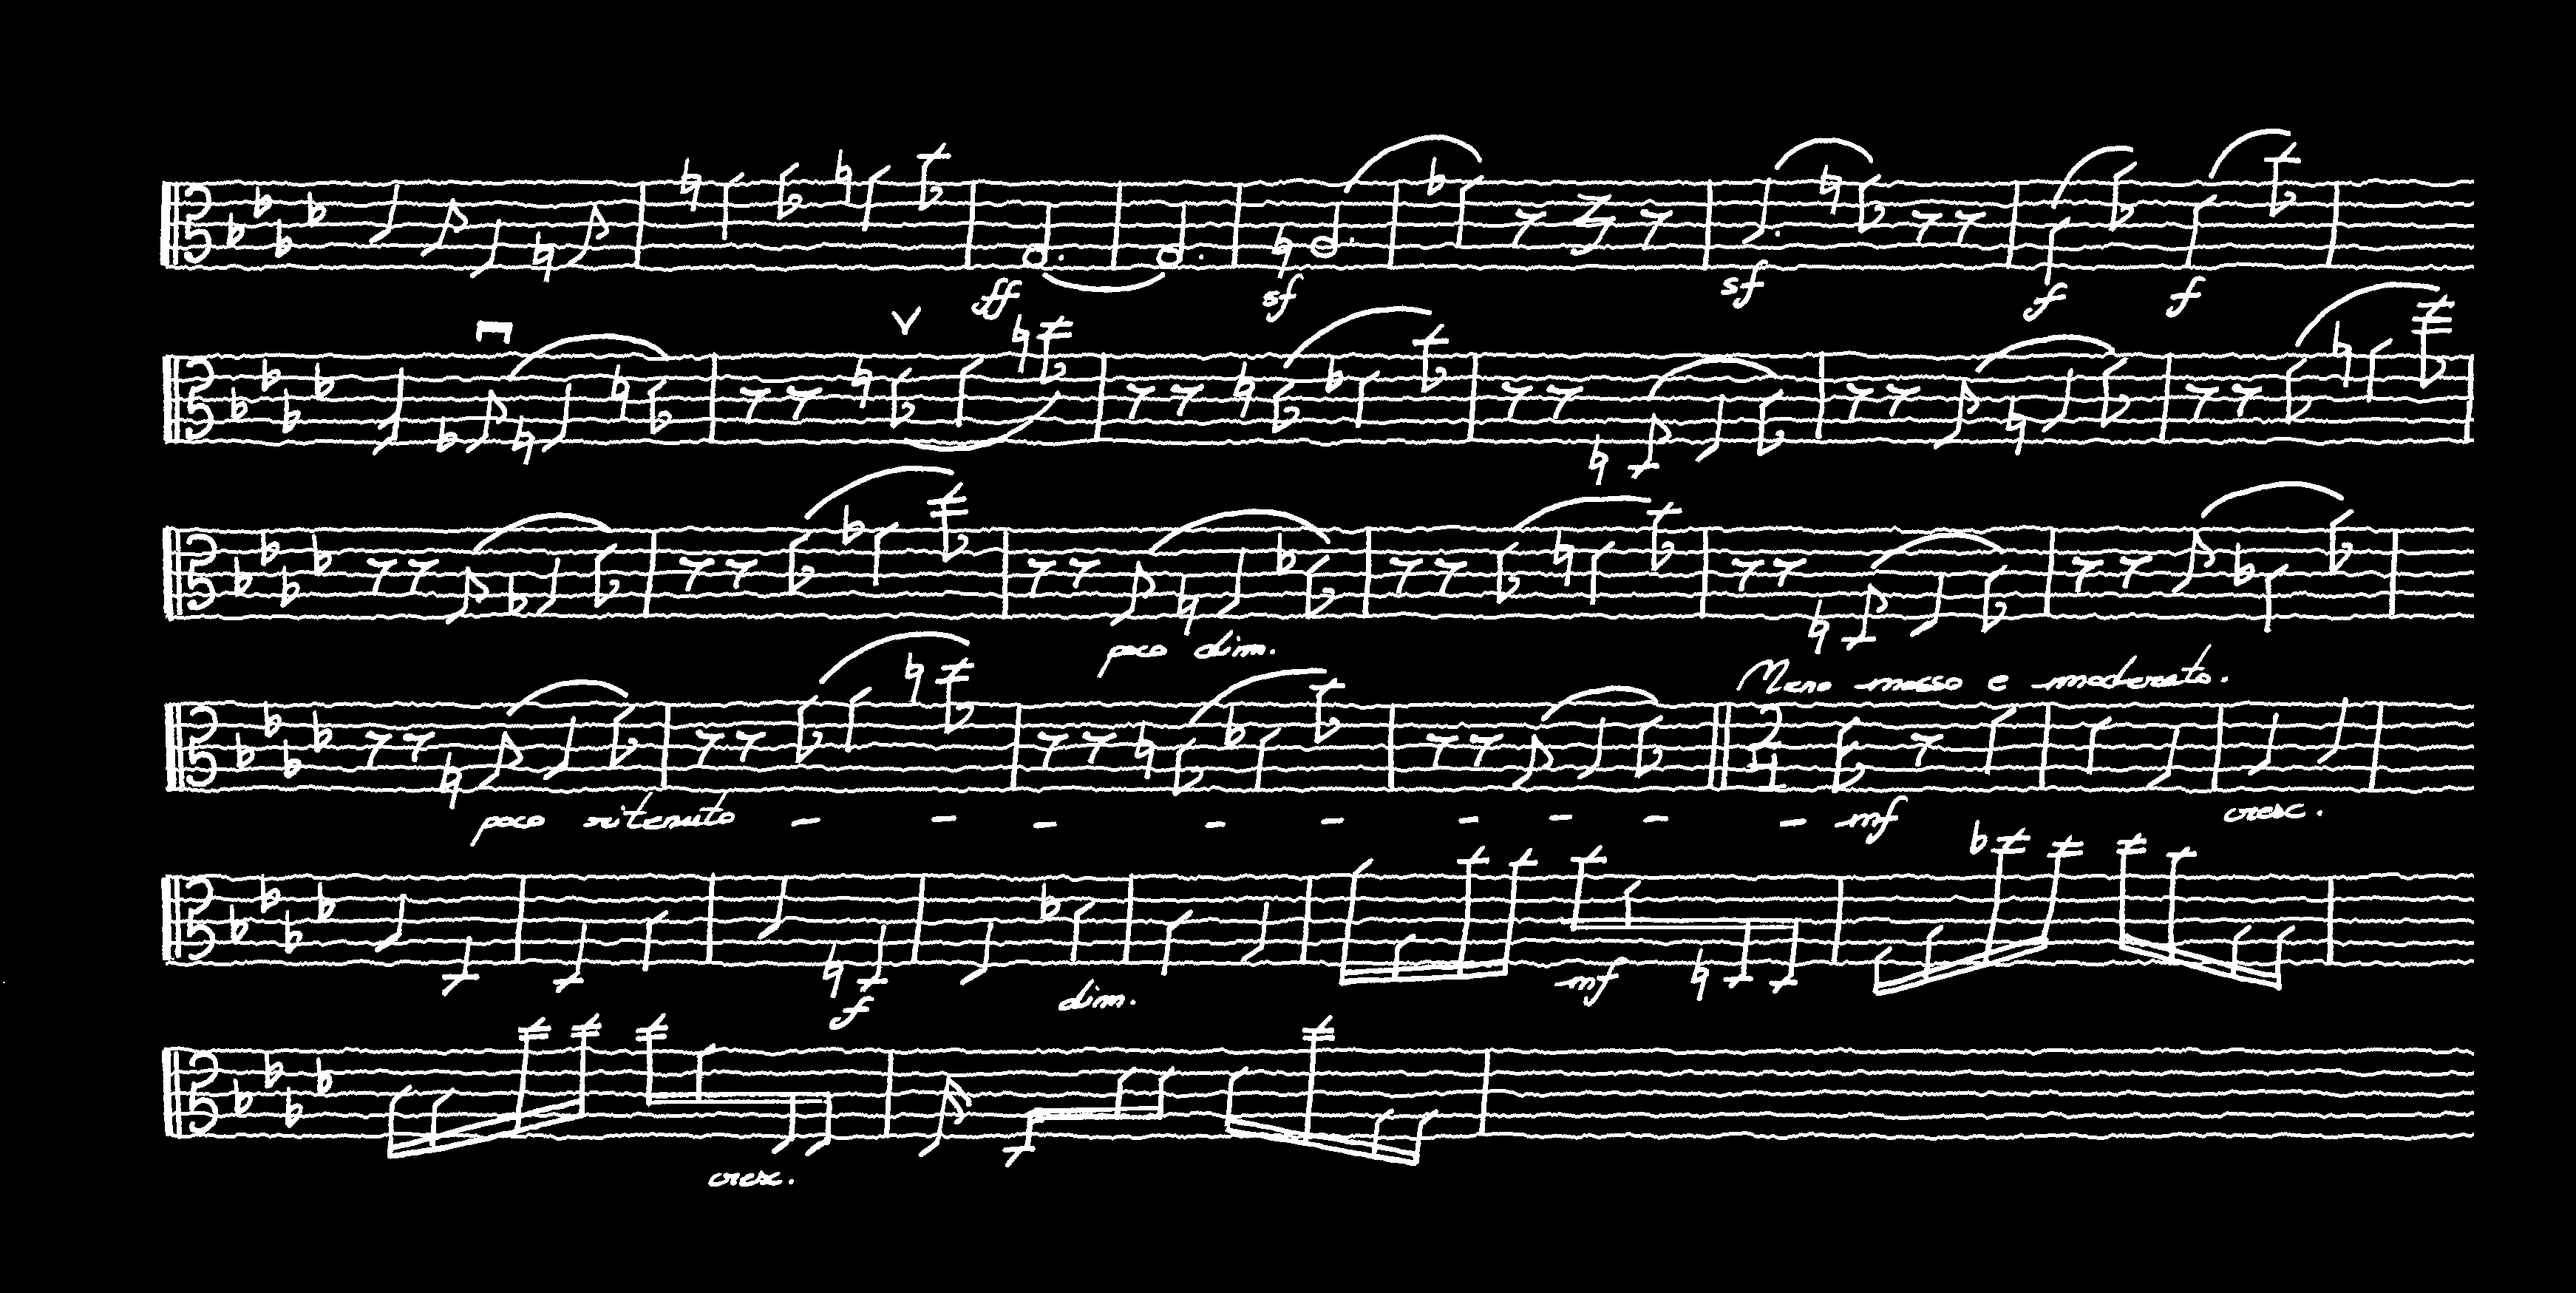 ff sf sf f f
poco dim.
Meno mosso e moderato.
2
4
poco ritenuto - - - - - - - - - mf cresc.
f dim. mf
cresc.